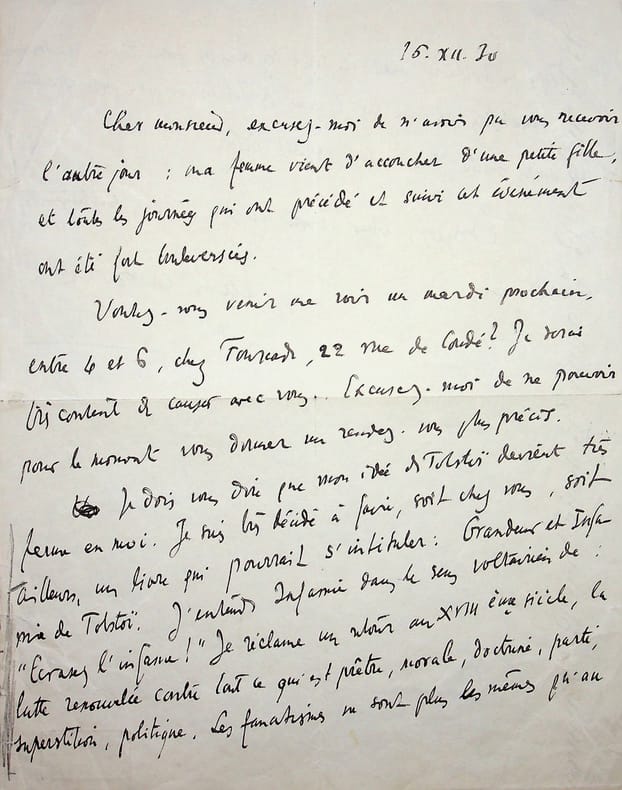 16.XII.30
Cher monsieur, excusez-moi de n'avoir pu vous recevoir
l'autre jour : ma femme vient d'accoucher d'une petite fille,
et toutes les journées qui ont précédé et suivi cet événément
ont été fort bouleversées.
Voulez-vous venir me voir un mardi prochain,
entre 4 et 6, chez Fourcade, 22 rue de Condé? Je serai
très content de causer avec vous.. Excusez-moi de ne pouvoir
pour le moment vous donner un rendez-vous plus précis.
Je dois vous dire que mon idée de Tolstoï devient très
ferme en moi. Je suis très décidé à faire, soit chez vous, soit
ailleurs, un livre qui pourrait s'intituler : Grandeur et Infa
mie de Tolstoï. J'entends Infamie dans le sens voltairien de :
"Ecrasez l'infâme!" Je réclame un retour au XVIII ème siècle, la
lutte renouvelée contre tout ce qui est prêtre, morale, doctrine, parti,
superstition, politique. Les fanatismes ne sont plus les mêmes qu'au